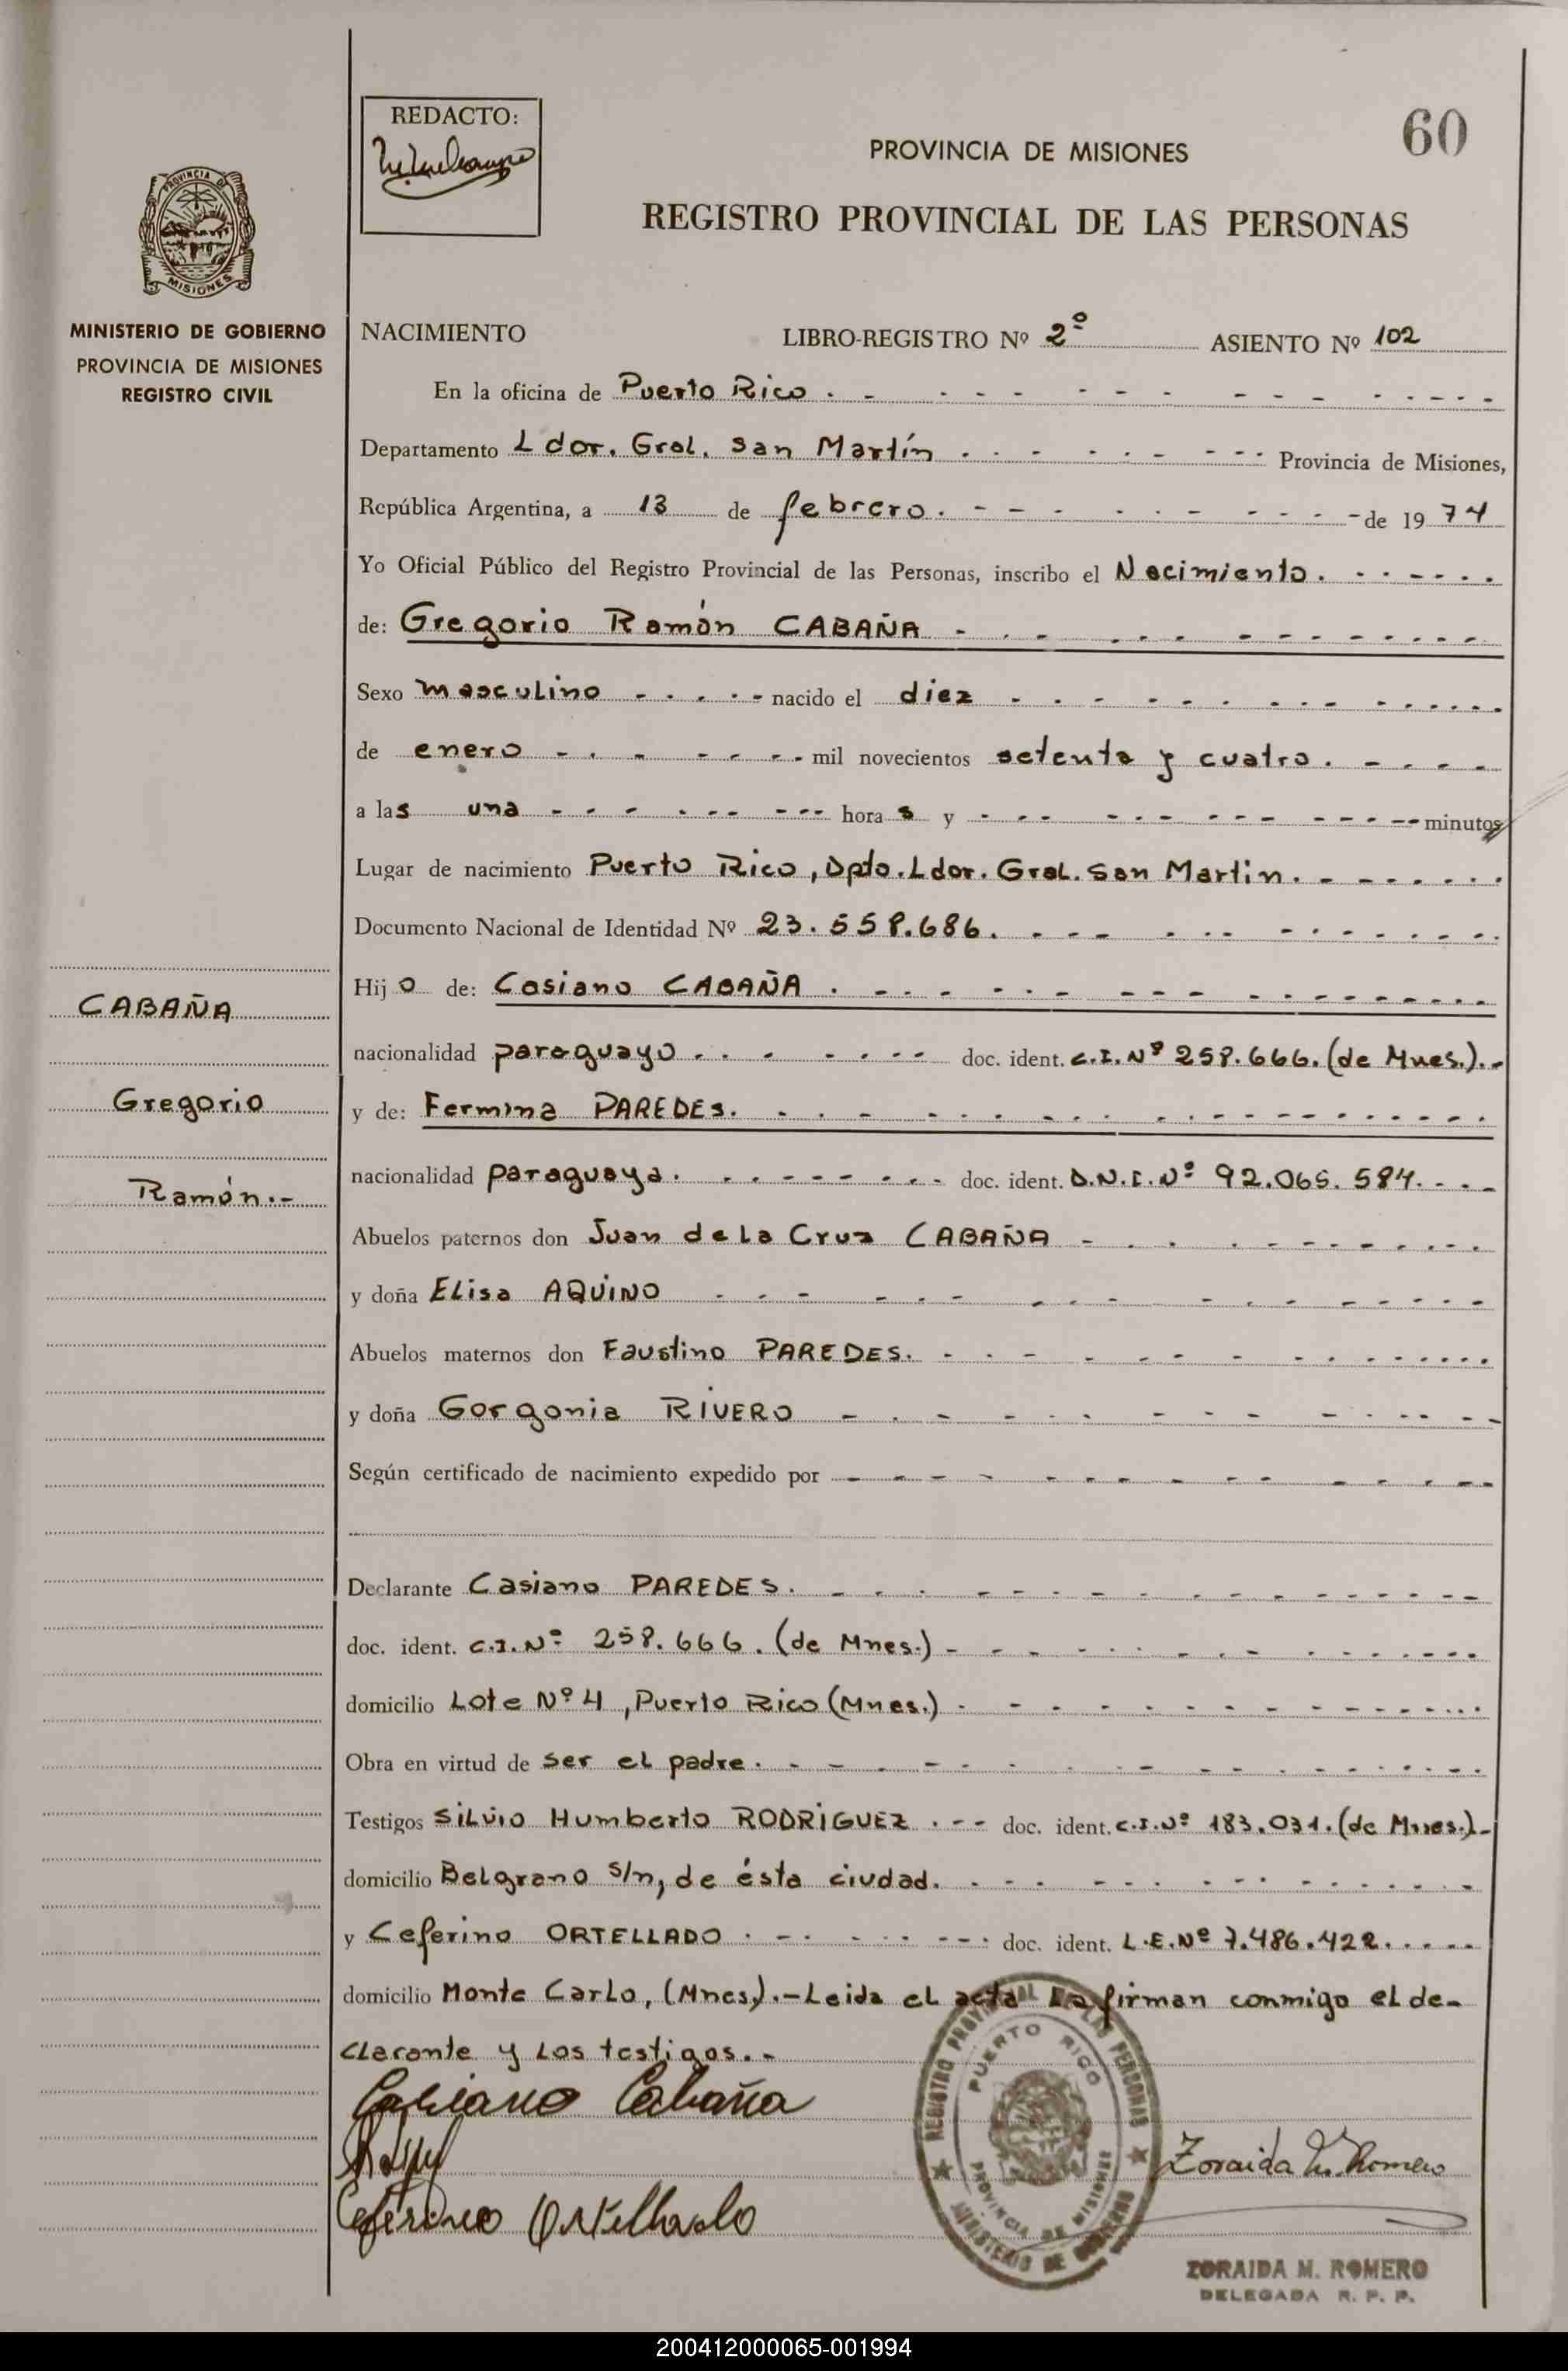 REDACTO:
60
PROVINCIA DE MISIONES
REGISTRO PROVINCIAL DE LAS PERSONAS
PROVINCIA DE
MISIONES
MINISTERIO DE GOBIERNO
PROVINCIA DE MISIONES
REGISTRO CIVIL
NACIMIENTO LIBRO-REGISTRO Nº 2º ASIENTO Nº 102
En la oficina de Puerto Rico.
Departamento Ldor. Gral. San Martín. Provincia de Misiones,
República Argentina, a 13 de febrero. de 1974
Yo Oficial Público del Registro Provincial de las Personas, inscribo el Nacimiento.
de: Gregorio Ramón CABAÑA
Sexo masculino nacido el diez
de enero mil novecientos setenta y cuatro.
a las una horas y minutos
Lugar de nacimiento Puerto Rico, Dpto. Ldor. Gral. San Martin.
Documento Nacional de Identidad Nº 23.558.686.
Hijo de: Casiano CABAÑA.
nacionalidad paraguayo. doc. ident. C.I.Nº 258.666. (de Mnes.).-
y de: Fermina PAREDES.
nacionalidad paraguaya. doc. ident. D.N.I.Nº 92.065.584.
Abuelos paternos don Juan de La Cruz CABAÑA
y doña Elisa AQUINO
Abuelos maternos don Faustino PAREDES.
y doña Gorgonia RIVERO
Según certificado de nacimiento expedido por
Declarante Casiano PAREDES.
doc. ident. C.I.Nº 258.666. (de Mnes.)
domicilio Lote Nº 4, Puerto Rico (Mnes.)
Obra en virtud de ser el padre.
Testigos Silvio Humberto RODRIGUEZ. doc. ident. C.I.Nº 183.031. (de Mnes.)-
domicilio Belgrano s/n, de ésta ciudad.
y Ceferino ORTELLADO. doc. ident. L.E.Nº 7.486.422.
domicilio Monte Carlo, (Mnes.).-Leida el acta la firman conmigo el de-
clarante y los testigos.-
CABAÑA
Gregorio
Ramón.-
Casiano Cabaña
Ceferino Ortellado
REGISTRO PROVINCIAL DE LAS PERSONAS
PUERTO RICO
PROVINCIA DE MISIONES
MINISTERIO DE GOBIERNO
Zoraida M. Romero
ZORAIDA M. ROMERO
DELEGADA R. P. P.
200412000065-001994